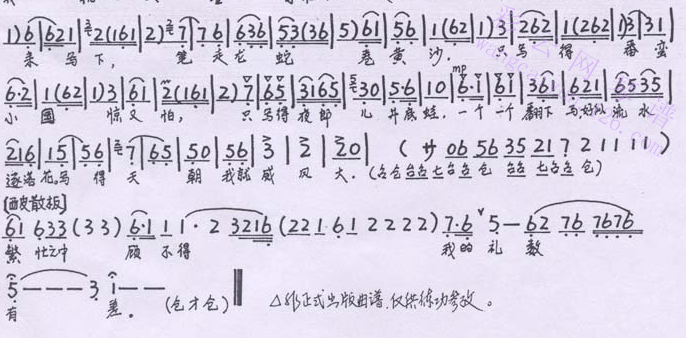 1)6|621|2(161|2)7|76|636|53(36|5)61|56|1(62|1)3|262|1(262|1)3|31|
来 马 下， 笔 走 龙 蛇 卷 黄 沙． 只 写 得 番 蛮
6·2|1(62|1)3|61|2(161|2)7|65|3165|30|5·6|10|6·1|61|361|621|6535|
小 国 惊 又 怕， 只 写得 夜 郎 儿 井底 蛙． 一个 一个 翻下 马好似 流 水
mp
216|15|56|7|65|50|56|3|2|20| (サ 06 56 35 21 7 2 1 1 1 1)
逐落 花．马 得 天 朝 我就 威 风 大．
[西皮散板]
61 633 (33) 6·1 1 1·2 3216 (221·61 2222) 7·6 5— 62 76 7676
繁 忙之中 顾 不得 我的 礼 数
5———3 1——
有 差． (仓才仓) △非正式出版曲谱，仅供练功参改。